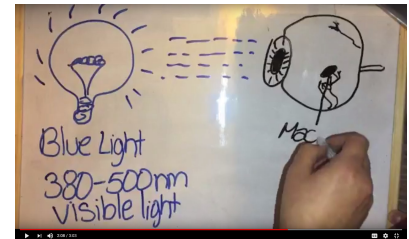 Blue Light
380-500nm
visible light
Mac